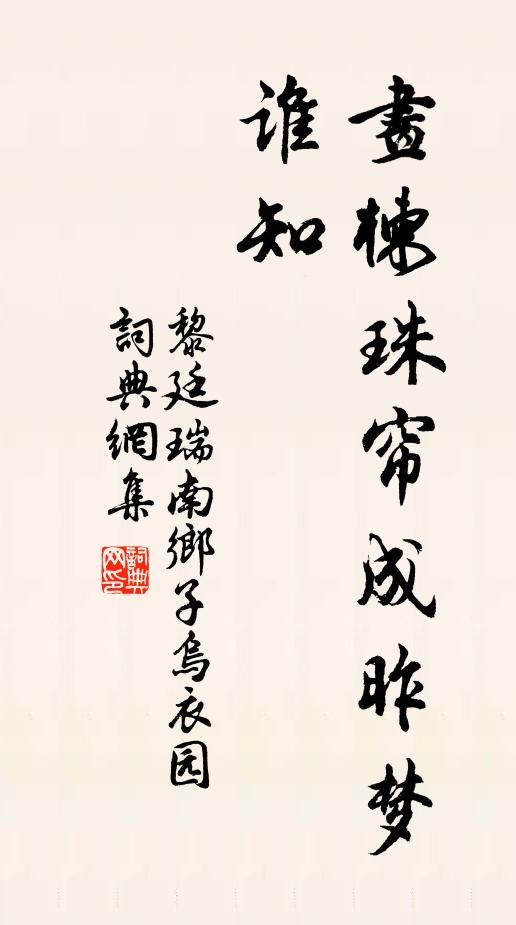 畫棟珠帘成昨梦
誰知
黎廷瑞南鄉子烏衣园
詞典網集
詞典网印